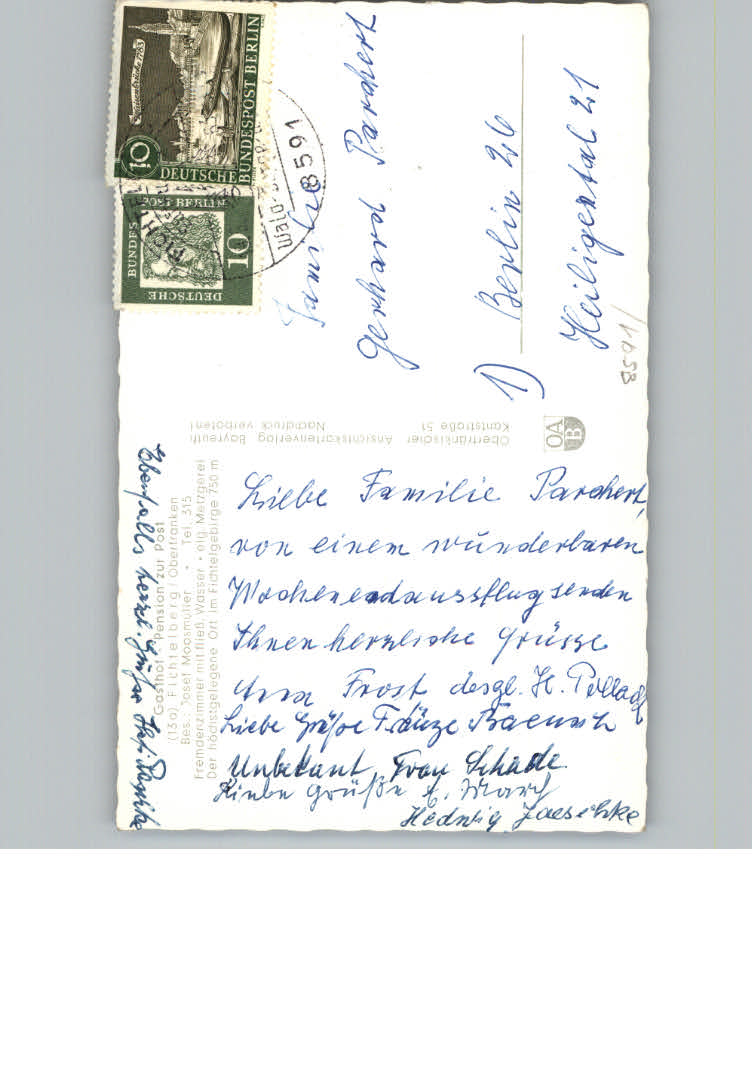 Gasthof - Pension zur Post
(13a) Fichtelberg / Oberfranken
Bes.: Josef Moosmüller • Tel. 315
Fremdenzimmer mit fließ. Wasser • eig. Metzgerei
Der höchstgelegene Ort im Fichtelgebirge 750 m
Liebe Familie Parchert,
von einem wunderbaren
Wochenendausflug senden
Ihnen herzliche Grüsse
Frost desgl. H.
Liebe Grüße Fränze
Unbekant Frau Schade.
Grüße
Hedwig Jaeschke
Ebenfalls herzl. Grüße
Oberfränkischer Ansichtskartenverlag Bayreuth
Kantstraße 51 Nachdruck verboten!
OA
B
DEUTSCHE
BUNDESPOST BERLIN
10
DEUTSCHE
BUNDESPOST BERLIN
10
8591
Familie
Gerhard Parchert
1) Berlin 26
Heiligental 21